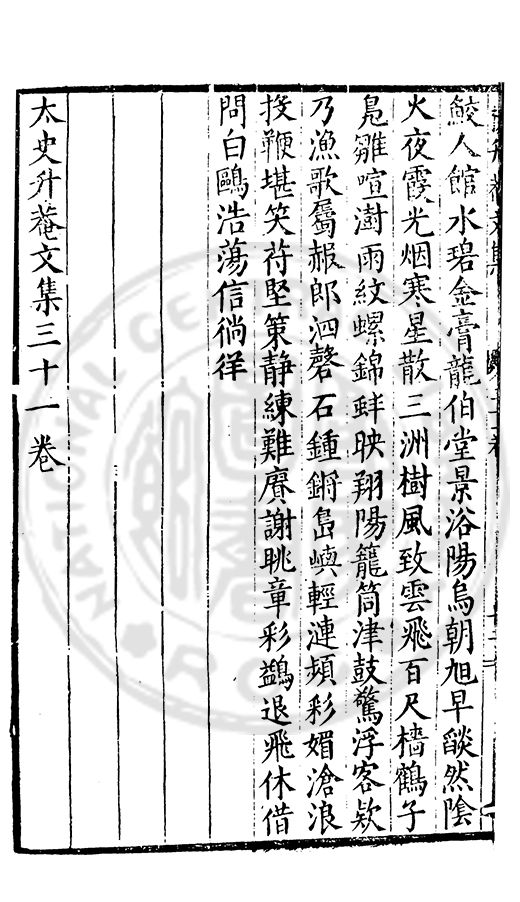 鮫人館水碧金膏龍伯堂景浴陽烏朝旭早燄然陰
火夜霞光烟寒星散三洲樹風致雲飛百尺檣鶴子
鳧雛喧澍雨紋螺錦蚌映翔陽籠筒津鼓驚浮客欸
乃漁歌屬赧郎泗磬石鍾鏘島嶼輕漣頻彩媚滄浪
投鞭堪笑苻堅策靜練難賡謝眺章彩鷁退飛休借
問白鷗浩蕩信徜徉
太史升菴文集三十一卷